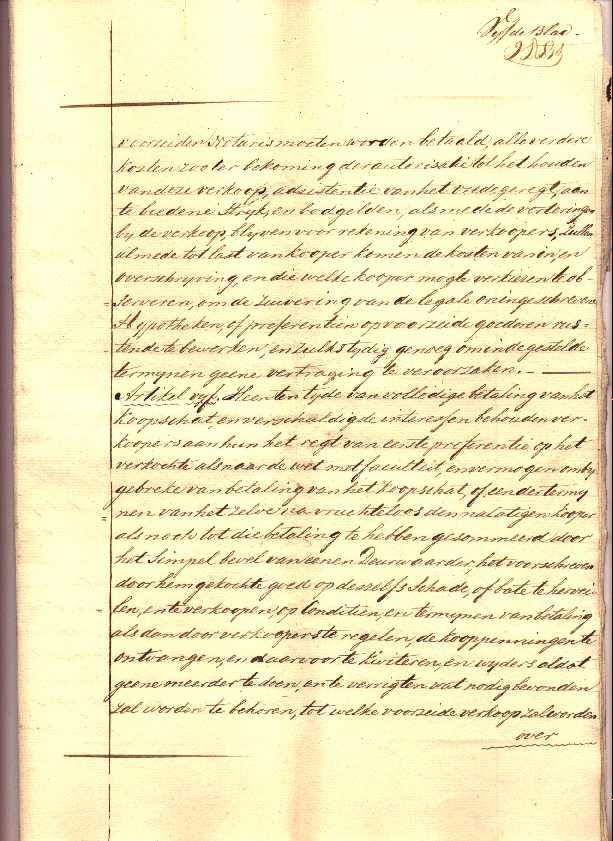 Vyfde Blad.
voorzeiden Notaris moeten worden betaald, alle verdere
kosten zoo ter bekoming der autorisatie tot het houden
van deze verkoop, adsistentie van het vredegeregt, aan
te biedene Stryk, en bodgelden, als mede de verteringen
by de verkoop, blyven voor rekening van verkopers, Zullen
almede tot last van kooper komen de kosten van in, en
overschryving, en die welke kooper mogte verkiezen te ob-
=serveren, om de Zuivering van de legale oningeschreven
Hypotheken, of preferentien op voorzeide goederen rus-
=tende te bewerken, en zulks tydig genoeg om in de gestelde
termynen geene vertraging te veroorzaken. —
Artikel vyf, Heen ten tyde van volledige betaling van het
Koopschat en verschuldigde interessen behouden ver-
=koopers aan hun het regt van eerste preferentie op het
verkochte als naar de wet met faculteit en vermogen om by
gebreke van betaling van het Koopschat, of een der termy
=nen van het zelve na vruchteloos den nalatigen Kooper
als noch tot die betaling te hebben gesommeerd door
het Simpel bevel van eenen Deurwaarder, het voorschreven
door hem gekochte goed op desselfs Schade, of bate te hervei
=len, en te verkoopen, op Conditien, en termynen van betaling
als dan door verkoopers te regelen, de kooppenningen te
ontvangen, en daarvoor te kwiteren, en wyders al dat
geene meerder te doen, en te verrigten wat nodig bevonden
zal worden te behoren, tot welke voorzeide verkoop zal worden
over